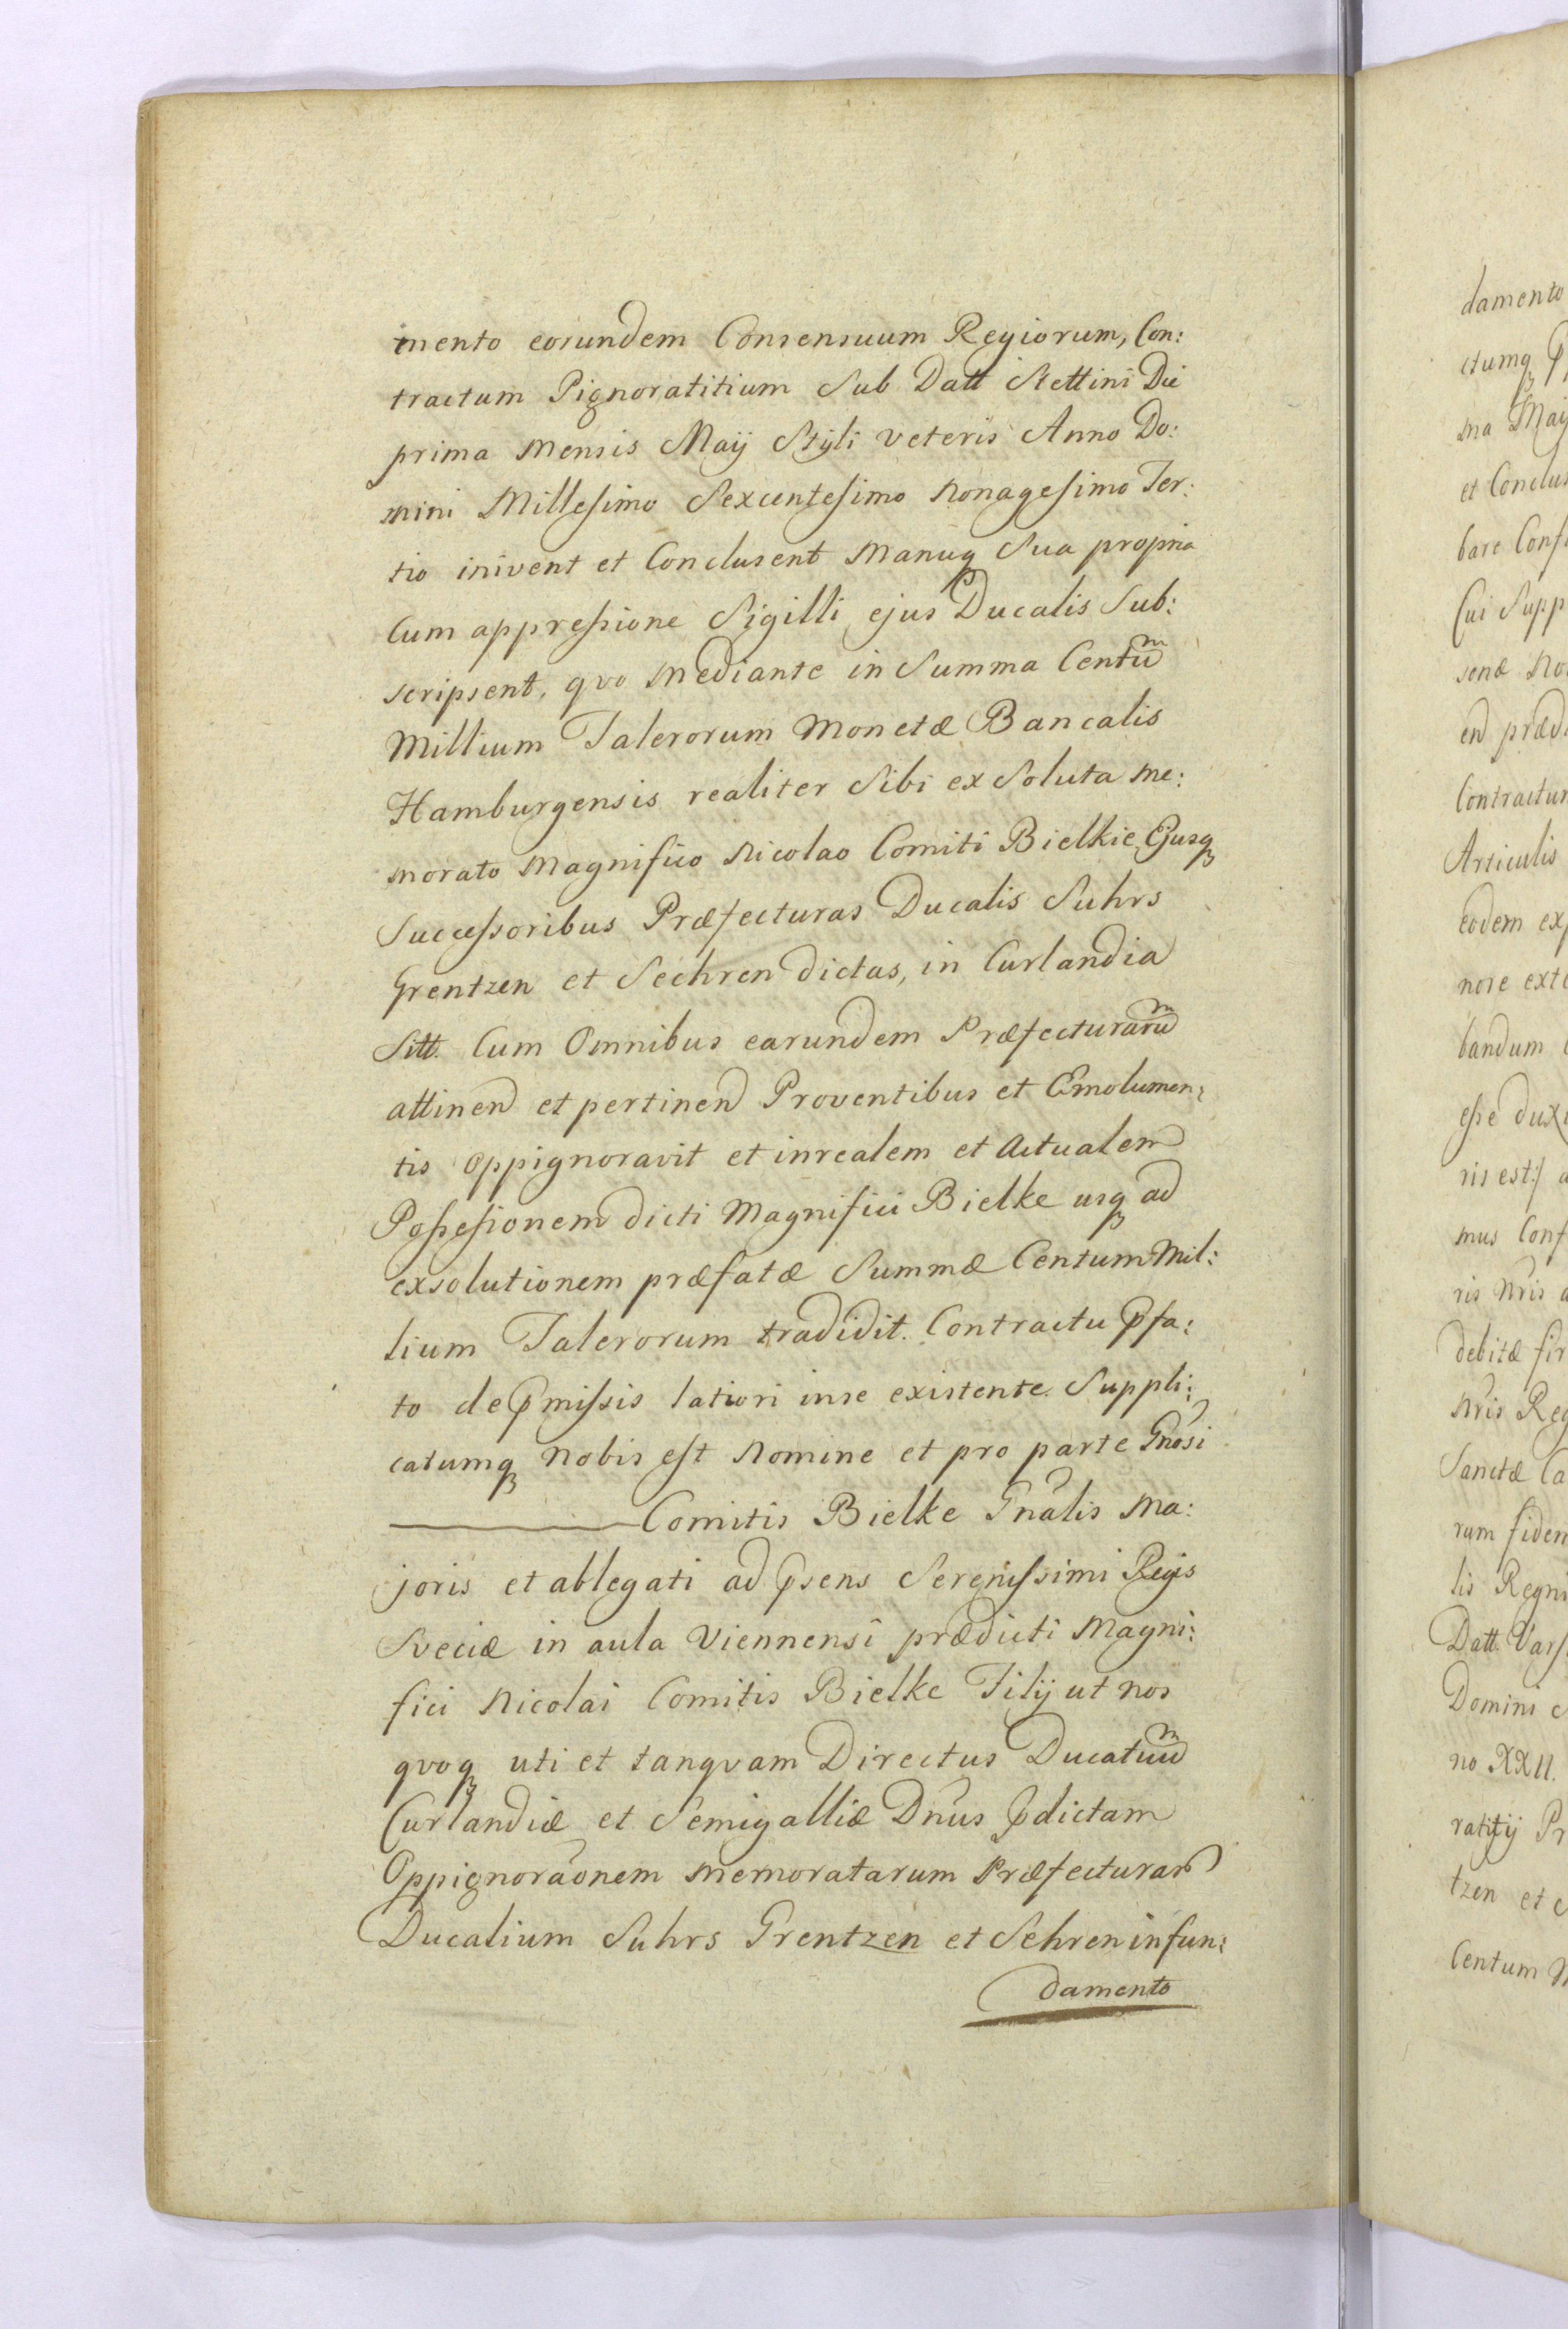 mento eorundem Consensuum Regiorum, Con:
tractum Pignoratitium Sub Datt Stettini Die
prima Mensis Maÿ Stÿli veteris Anno Do:
mini Millesimo Sexcentesimo Nonagesimo Ter:
tio inivent et Conclusent Manuq Sua propria
Cum appressione Sigilli ejus Ducalis Sub:
scripsent, qvo Mediante in Summa Centum
Millium Talerorum Monetæ Bancalis
Hamburgensis realiter Sibi exSoluta me:
morato Magnifico Nicolao Comiti Bielkie Ejusq
Successoribus Præfecturas Ducalis Suhrs
Grentzen et Sechren dictas, in Curlandia
Sitt. Cum Omnibus earundem Præfecturarum
attinend et pertinend Proventibus et Emolumen:
tis oppignoravit et inrealem et Actualem
Possesionem dicti Magnifici Bielke usq ad
exsolutionem præfatæ Summæ Centum Mil:
lium Talerorum tradidit. Contractu pfa:
to de pmissis latiori inse existente. Suppli:
catumq Nobis est Nomine et pro parte Gnosi
Comitis Bielke Gnalis Ma:
joris et ablegati ad psens Serenissimi Regis
Sveciæ in aula Viennensi prædicti Magni:
fici Nicolai Comitis Bielke Filÿ ut nos
qvoq uti et tanqvam Directus Ducatuum
Curlandiæ et Semigalliæ Dnus pdictam
Oppignoraonem Memoratarum Præfecturar
Ducalium Suhrs Grentzen et Sehren infun:
damento
damento
ctumq
ma Maÿ
et Conclus
bare Conf
Cui Supp
senæ No
end præd
Contractum
Articulis
eodem exp
nore exte
bandum
esse dux
ris est:/ a
mus Conf
ris Nris a
debitæ fir
Nris Reg
Sanctæ Ca
rum fidem
lis Regni
Datt. Vars
Domini
no XXII.
ratitÿ Pr
tzen et S
Centum M